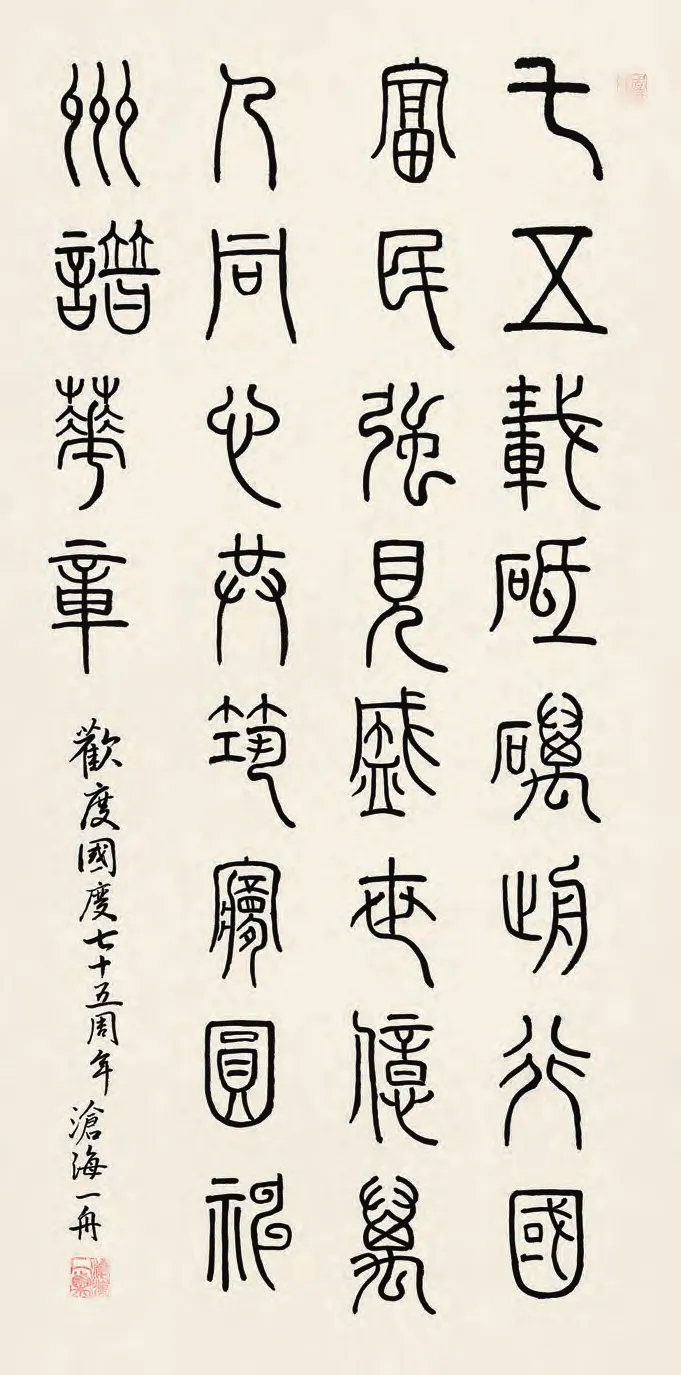 七五載砥礪前行國
富民強見盛世億萬
人同心共筑夢圓神
州譜華章
歡度國慶七十五周年 滄海一舟